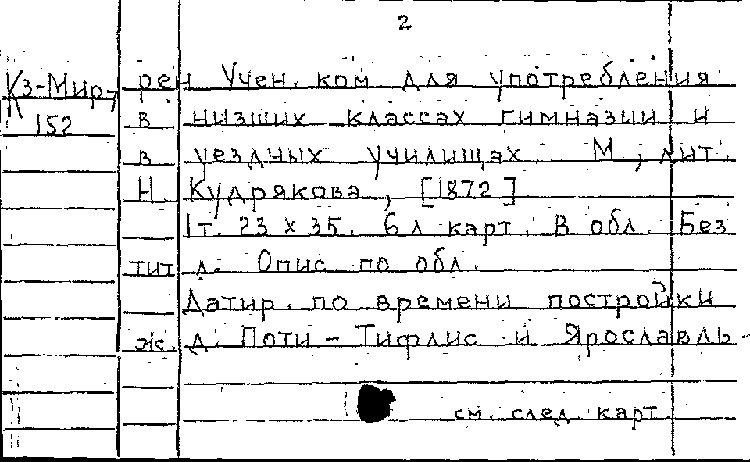 2
Кз-Мир-
152
рен Учен. ком для употребления
в низших классах гимназии и
в уездных училищах. М, лит.
Н Кудрякова, [1872]
1т. 23 х 35. 6 л карт. В обл. Без
тит л. Опис по обл.
Датир. по времени постройки
ж. д. Поти - Тифлис и Ярославль -
см. след. карт